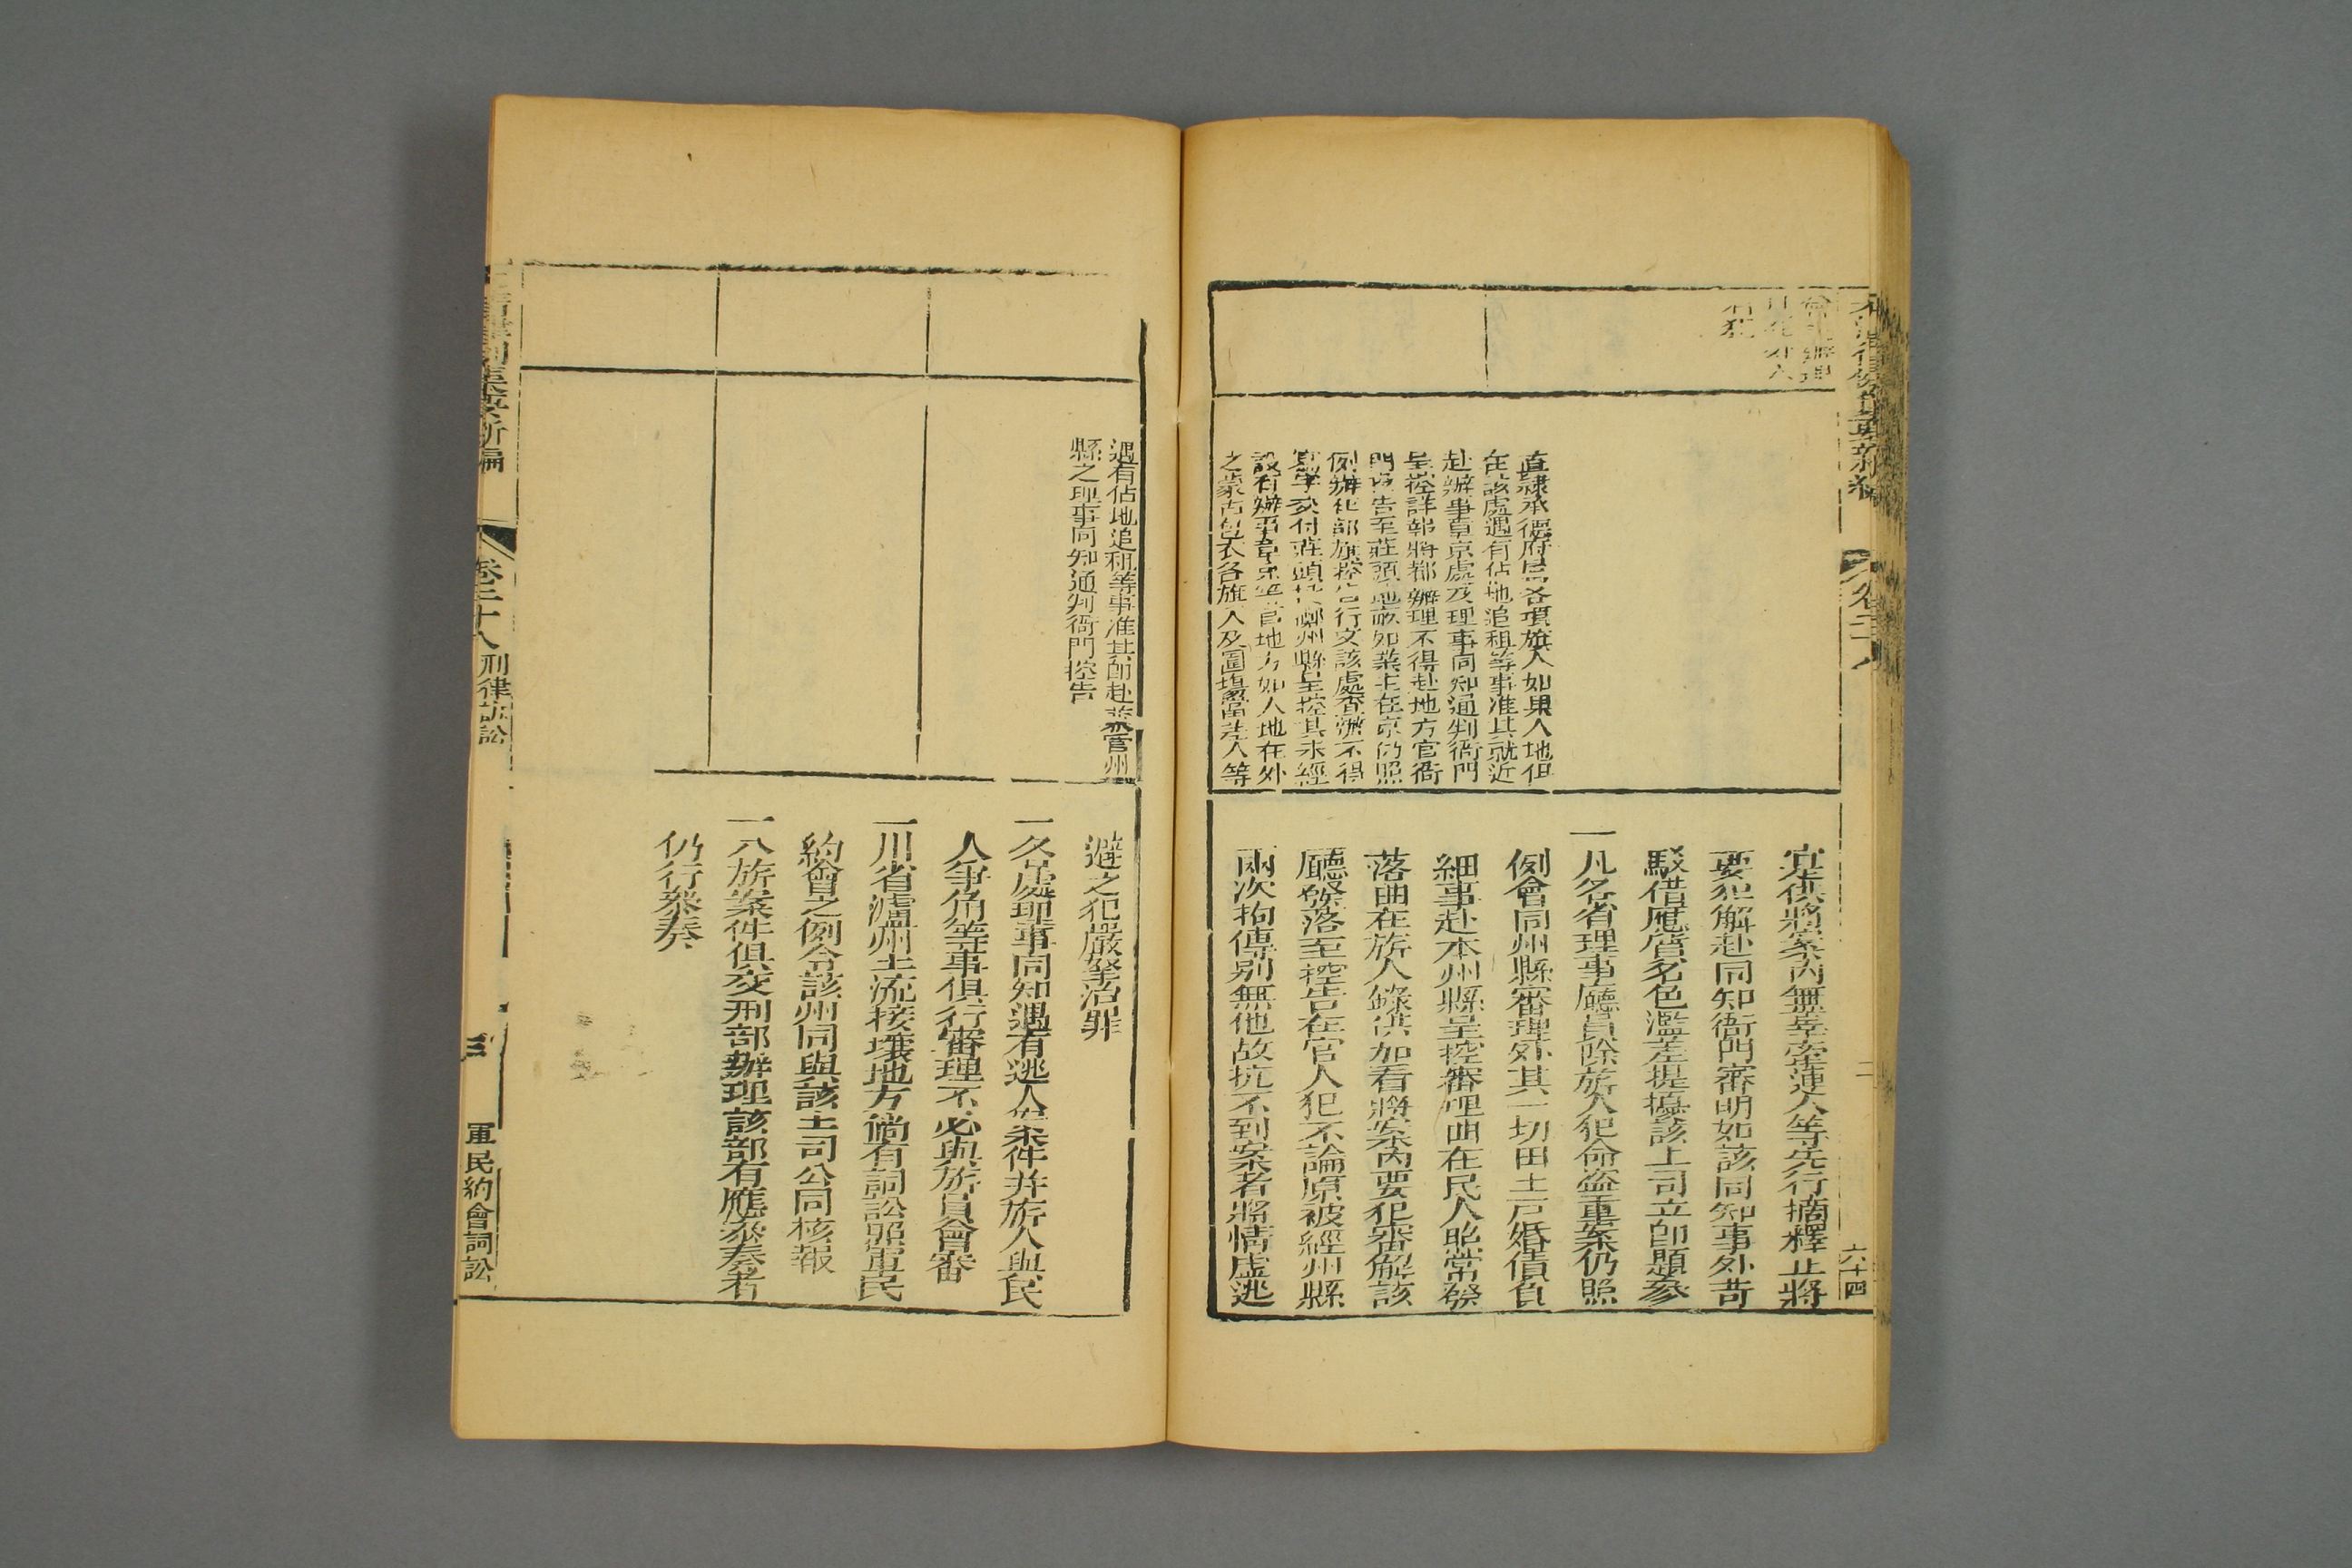 大清律例彙輯新編
卷二十八
六十四
直隸承德府屬各項旗人如果人地但
在該處遇有佔地追租等事准其就近
赴辦事章京處及理事同知通判衙門
呈控詳報將都辦理不得赴地方官衙
門 告至莊頭地畝如業主在京仍照
例辦 部旗控告行文該處查辦不得
寫字交付莊頭 州縣呈控其未經
設有辦事章京 官地方如人地在外
之蒙古包衣各旗人及圍場當差人等
宜供將案內無辜牽連人等先行摘釋止將
要犯解赴同知衙門審明如該同知事外苛
駁借應質名色濫差提擾該上司立即題參
一凡各省理事廳員除旂人犯命盜重案仍照
例會同州縣審理外其一切田土戶婚債負
細事赴本州縣呈控審理曲在民人照常發
落曲在旂人錄供加看將案內要犯審解該
廳發落至控告在官人犯不論原被經州縣
兩次拘傳別無他故抗不到案者將情虛逃
遇有佔地追租等事准其卽赴 管州
縣之理事同知通判衙門控告
避之犯嚴拏治罪
一各處理事同知遇有逃人案件并旂人與民
人爭角等事俱行審理不必與旂員會審
一川省瀘州土流接壤地方倘有詞訟照軍民
約會之例令該州同與該土司公同核報
一八旂案件俱交刑部辦理該部有應叅奏者
仍行叅奏
卷二十八 刑律訴訟
三
軍民約會詞訟